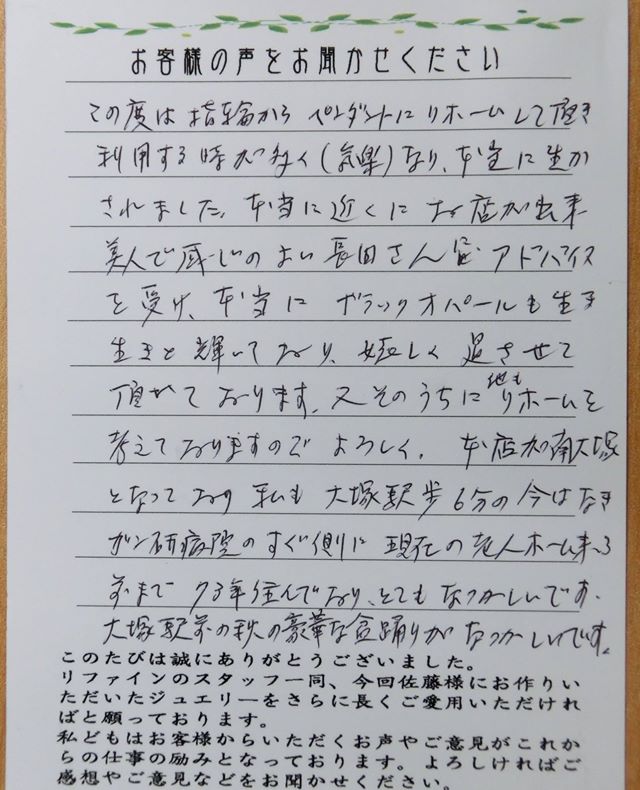 お客様の声をお聞かせください
この度は指輪から ペンダントにリホームして頂き
利用する時が多く(気楽)なり、本当に生か
されました。本当に近くに お店が出来
美人で感じのよい長田さん アドバイス
を受け、本当に ブラックオパールも生き
生きと輝いており、嬉しく させて
頂いております。又そのうちに他もリホームを
考えておりますので よろしく。 本店が南大塚
となっており 私も 大塚駅歩6分の今はなき
ガン研病院のすぐ側に 現在の老人ホーム来る
前まで 73年住んでおり、とても なつかしいです。
大塚駅前の秋の豪華な盆踊りがなつかしいです。
このたびは誠にありがとうございました。
リファインのスタッフ一同、今回佐藤様にお作りい
ただいたジュエリーをさらに長くご愛用いただけれ
ばと願っております。
私どもはお客様からいただくお声やご意見がこれか
らの仕事の励みとなっております。よろしければご
感想やご意見などをお聞かせください。